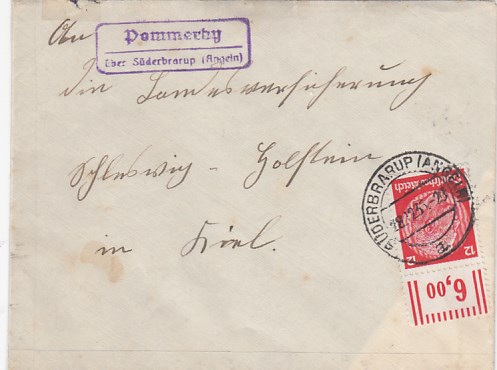 An
Pommerby
über Süderbrarup (Angeln)
die Landesversicherung
Schleswig - Holstein
in Kiel.
SÜDERBRARUP (ANGELN)
Deutsches Reich
12 12
6,00